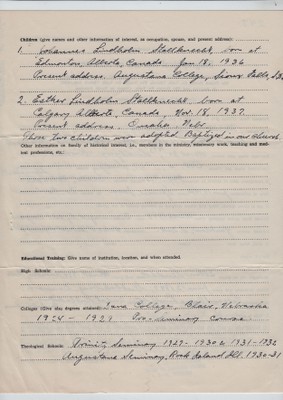 Children (give names and other information of interest, as occupation, spouse, and present address):
1. Johannes Lindholm Stallknecht, born at
Edmonton, Alberta, Canada Jan. 18, 1936
Present address, Augustana College, Sioux Falls, S.D.
2. Esther Lindholm Stallknecht, born at
Calgary Alberta, Canada, Nov. 18, 1937.
Present address, Omaha, Nebr.
These two children were adopted. Baptized in our church
Other information on family of historical interest, i.e., members in the ministry, missionary work, teaching and medical profession, etc.:
Educational Training: Give name of institution, location, and when attended.
High Schools:
Colleges (Give also degrees attained): Dana College, Blair, Nebraska
1924 - 1929 Pro-seminary Course.
Theological Schools: Trinity Seminary 1929-1930 & 1931-1932
Augustana Seminary, Rock Island Ill. 1930-31